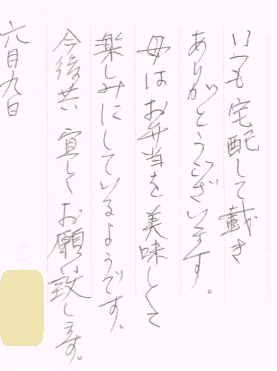 いつも宅配して戴き
ありがとうございます。
母はお弁当を美味しくて
楽しみにしているようです。
今後共宜しくお願い致します。
六月九日